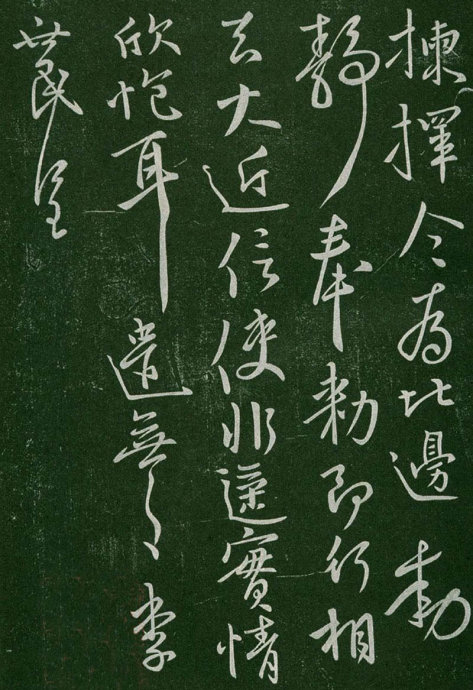 揀擇今為北邊動
靜奉勅即行相
去大近信使非遥實情
欣耳遣無李
世民呈